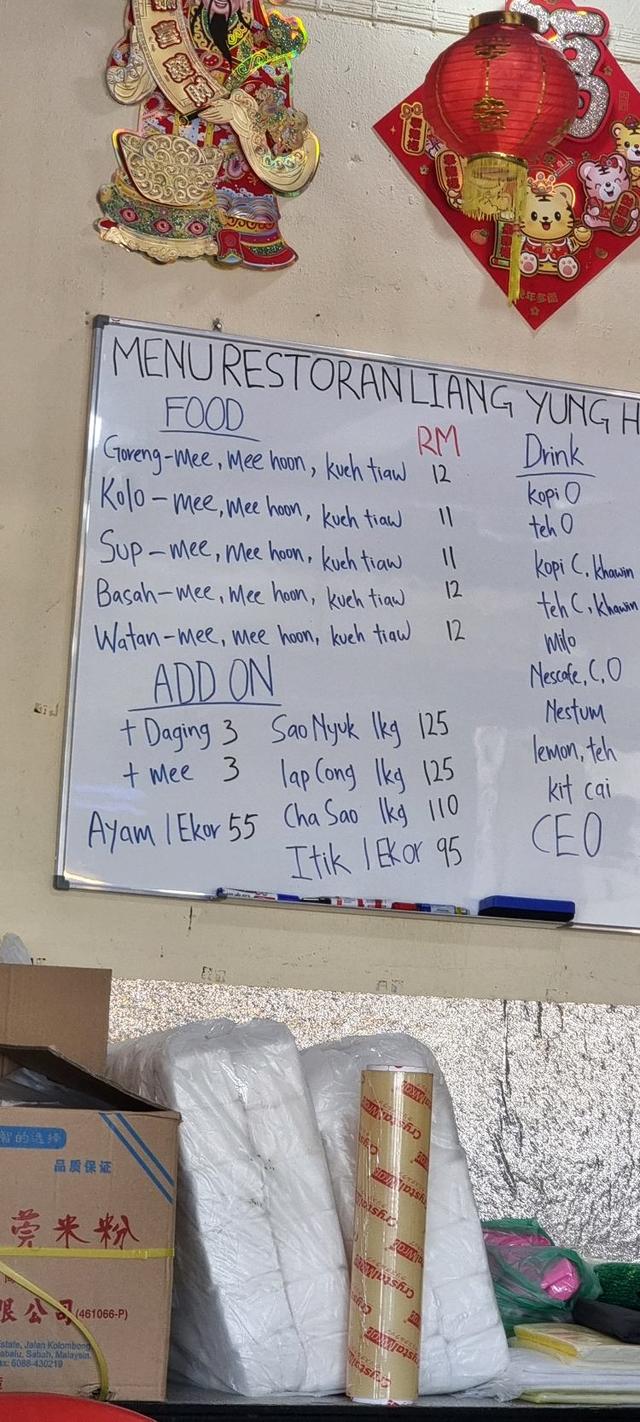 MENU RESTORAN LIANG YUNG H
FOOD
RM
Goreng-mee, mee hoon, kueh tiaw 12
Kolo-mee, mee hoon, kueh tiaw 11
Sup-mee, mee hoon, kueh tiaw 11
Basah-mee, mee hoon, kueh tiaw 12
Watan-mee, mee hoon, kueh tiaw 12
ADD ON
+ Daging 3
+ mee 3
Ayam 1 Ekor 55
Sao Nyuk 1kg 125
lap Cong 1kg 125
Cha Sao 1kg 110
Itik 1 Ekor 95
Drink
kopi O
teh O
kopi C, khawin
teh C, khawin
milo
Nescafe, C, O
Nestum
lemon, teh
kit cai
CEO
的选择
品质保证
莞米粉
限公司 (461066-P)
Jalan Kolombong
Sabah, Malaysia.
6088-430219
CrystalWrap